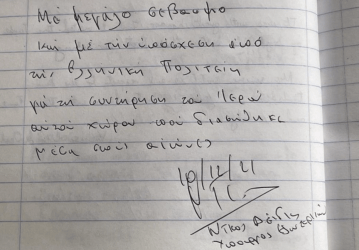 Μέ μεγάλο σεβασμό
και μέ την υπόσχεση από
την Ελληνική Πολιτεία
γιά τη συντήρηση του Ιερού
αυτού χώρου που διασώθηκε
μέσα στους αιώνες
10/12/21
Νίκος Δένδιας
Υπουργός Εξωτερικών